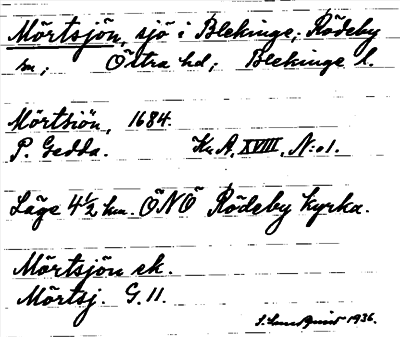 Mörtsjön, sjö i Blekinge; Rödeby
sn; Östra hd; Blekinge l.
Mörtsiön, 1684.
P. Gedda. Kr. A. XVIII. N:o 1.
Läge 4 1/2 km. ÖNÖ Rödeby kyrka.
Mörtsjön ek.
Mörtsj. G. 11.
S. Lundquist 1936.